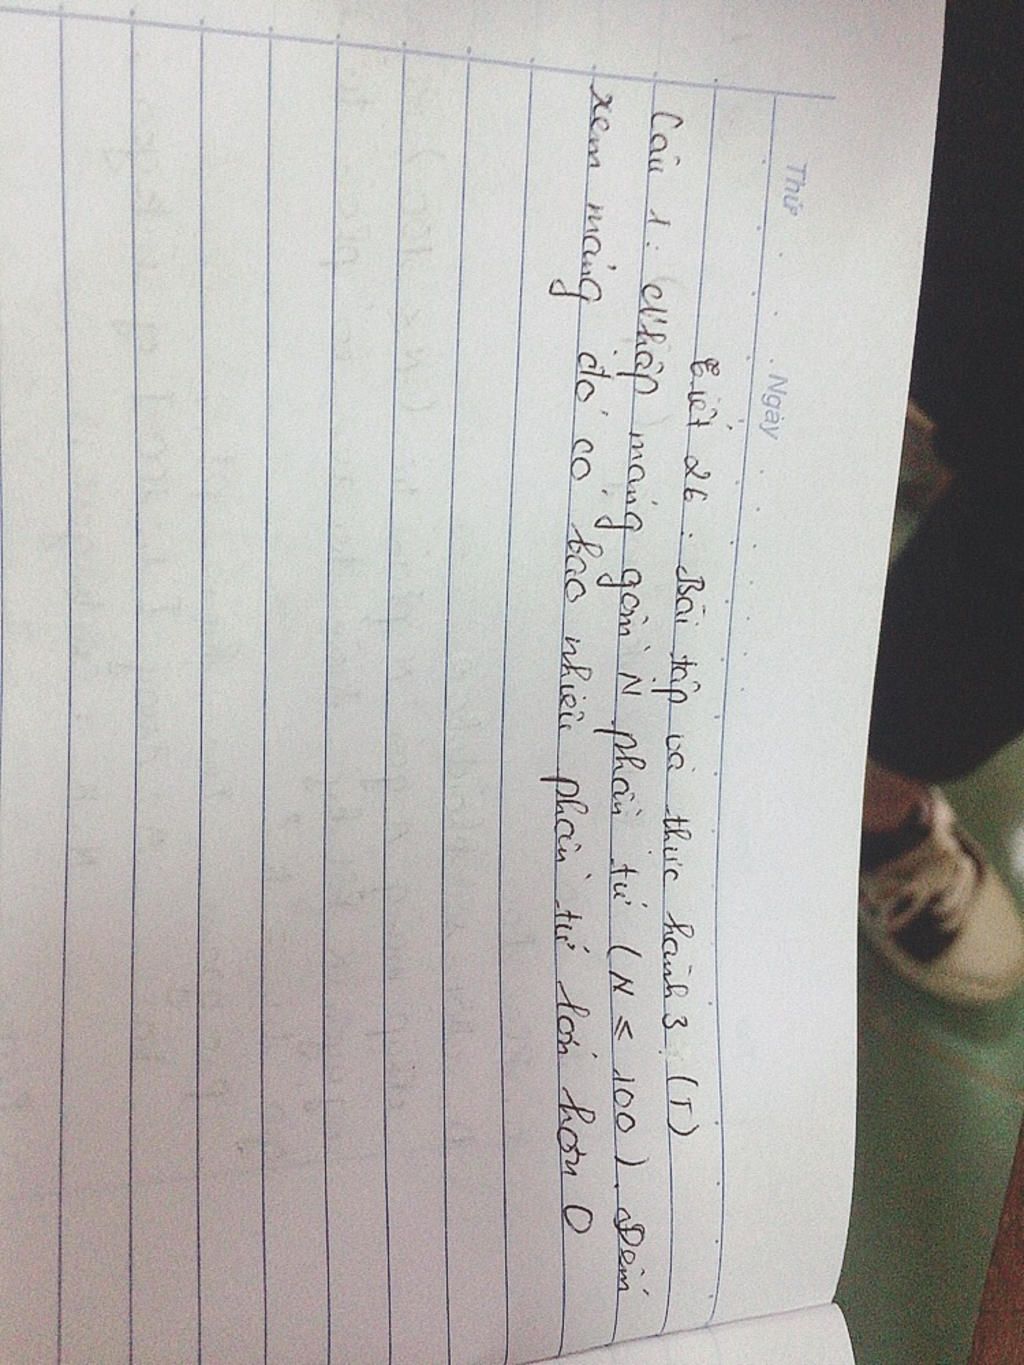 Thứ
Ngày
Tiết 26: Bài tập và thực hành 3 (T)
Câu 1: Nhập mảng gồm N phần tử (N ≤ 100). Đếm
xem mảng đó có bao nhiêu phần tử lớn hơn 0